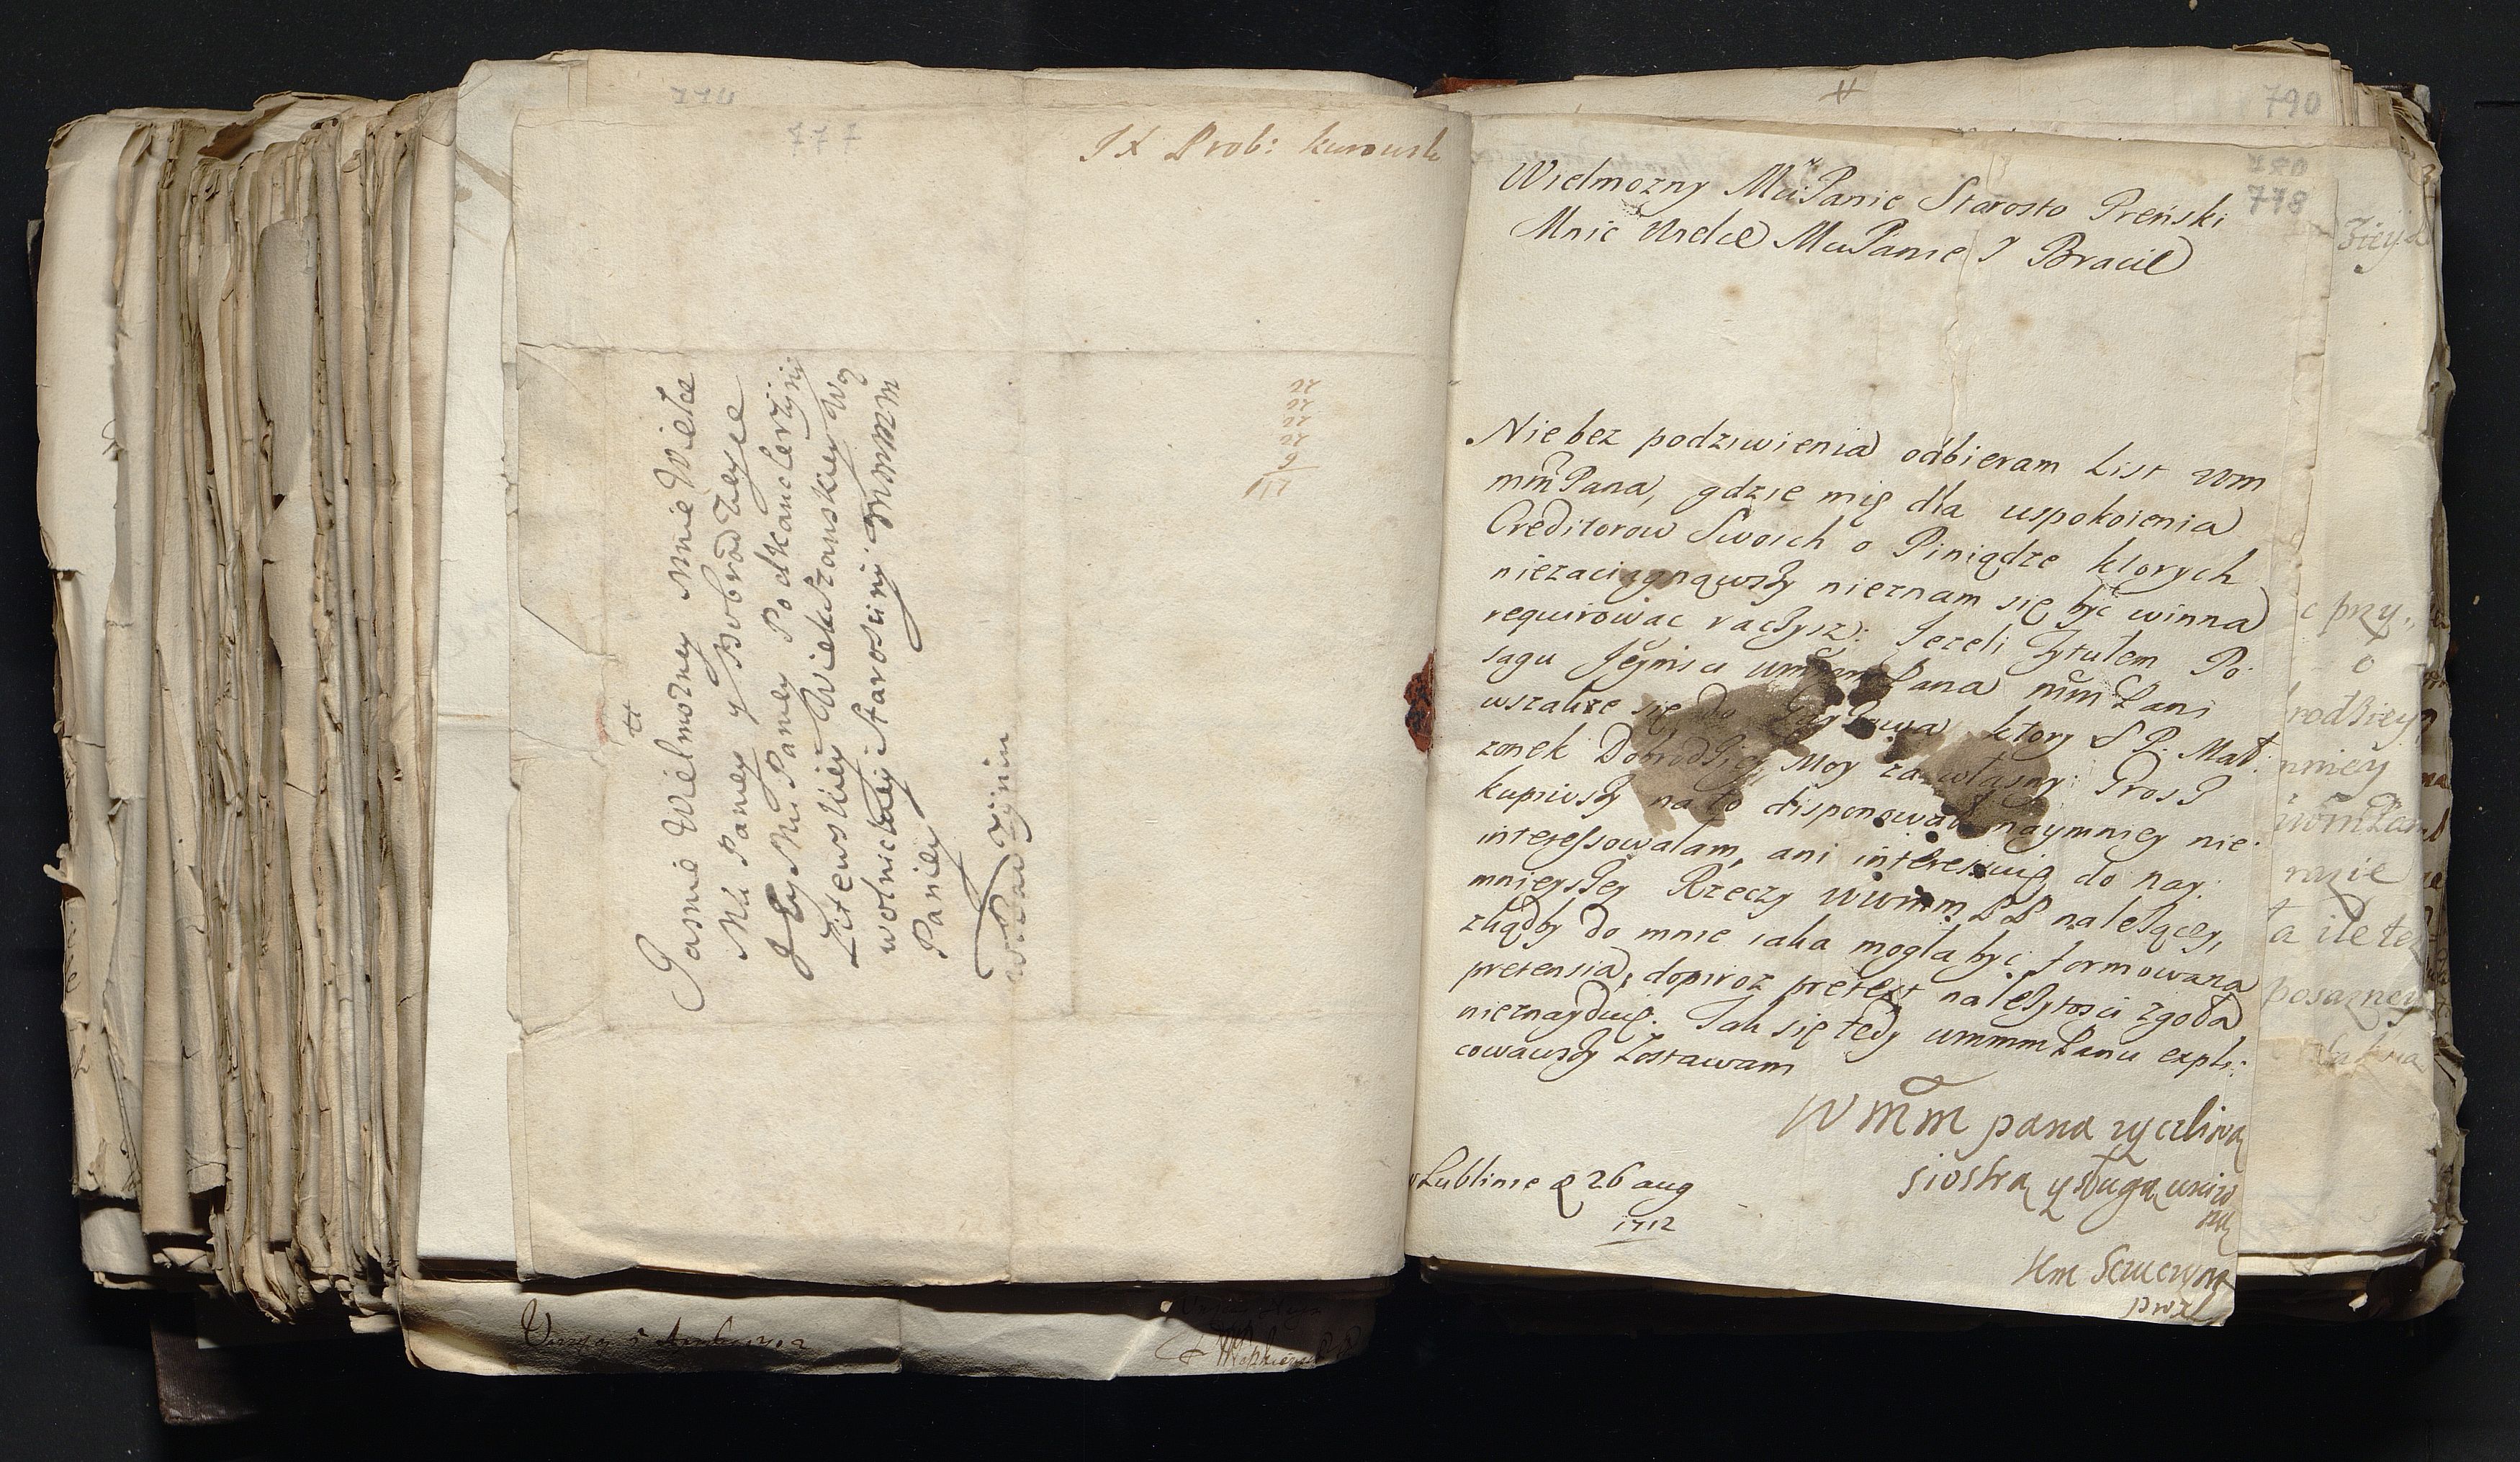 777
JX Prob: kurowsk
Jasnie Wielmozney Mnie Wielce
Mci Paniey y Dobrodzieyce
Jey Mci Paniey Podkanclerzyni
Litewskiey Wiekszanskiey Wo
wolnickiey Starosciny MMMM
Paniey
22
20
22
20
790
778
Wielmozny Mci Panie Starosto Preński
Mnie Wielce Mci Panie J Bracie
Nie bez podziwienia odbieram List Wm
mm Pana, gdzie mię dla uspokoienia
Creditorow Swoich o Piniądze ktorych
niezaciągnąwszy nieznam się być winna
requirowac raczysz. Jezeli Tytułem Po:
sagu Jeymsci Pana mm Pani
wszakze się do ktory S P. Małt:
zonek Dobrodziey Moy za własny Grosz
kupiwszy na to disponował naymniey nie:
interessowałam, ani interessuię do nay:
mnieyszey Rzeczy Wwmm P P nalezącey,
zkądby do mnie iaka mogła być formowana
pretensia, dopiroz pretext nalezytosci zgoła
nieznayduię. Jak się tedy Wmmm Panu expli:
cowawszy Zostawam
W M M pana zyczliwą
siostrą y sługą uniz
ną
w Lublinie d 26 aug
1712
c przy:
o
rodziey
mniey
razie
ta ile tez
posazney